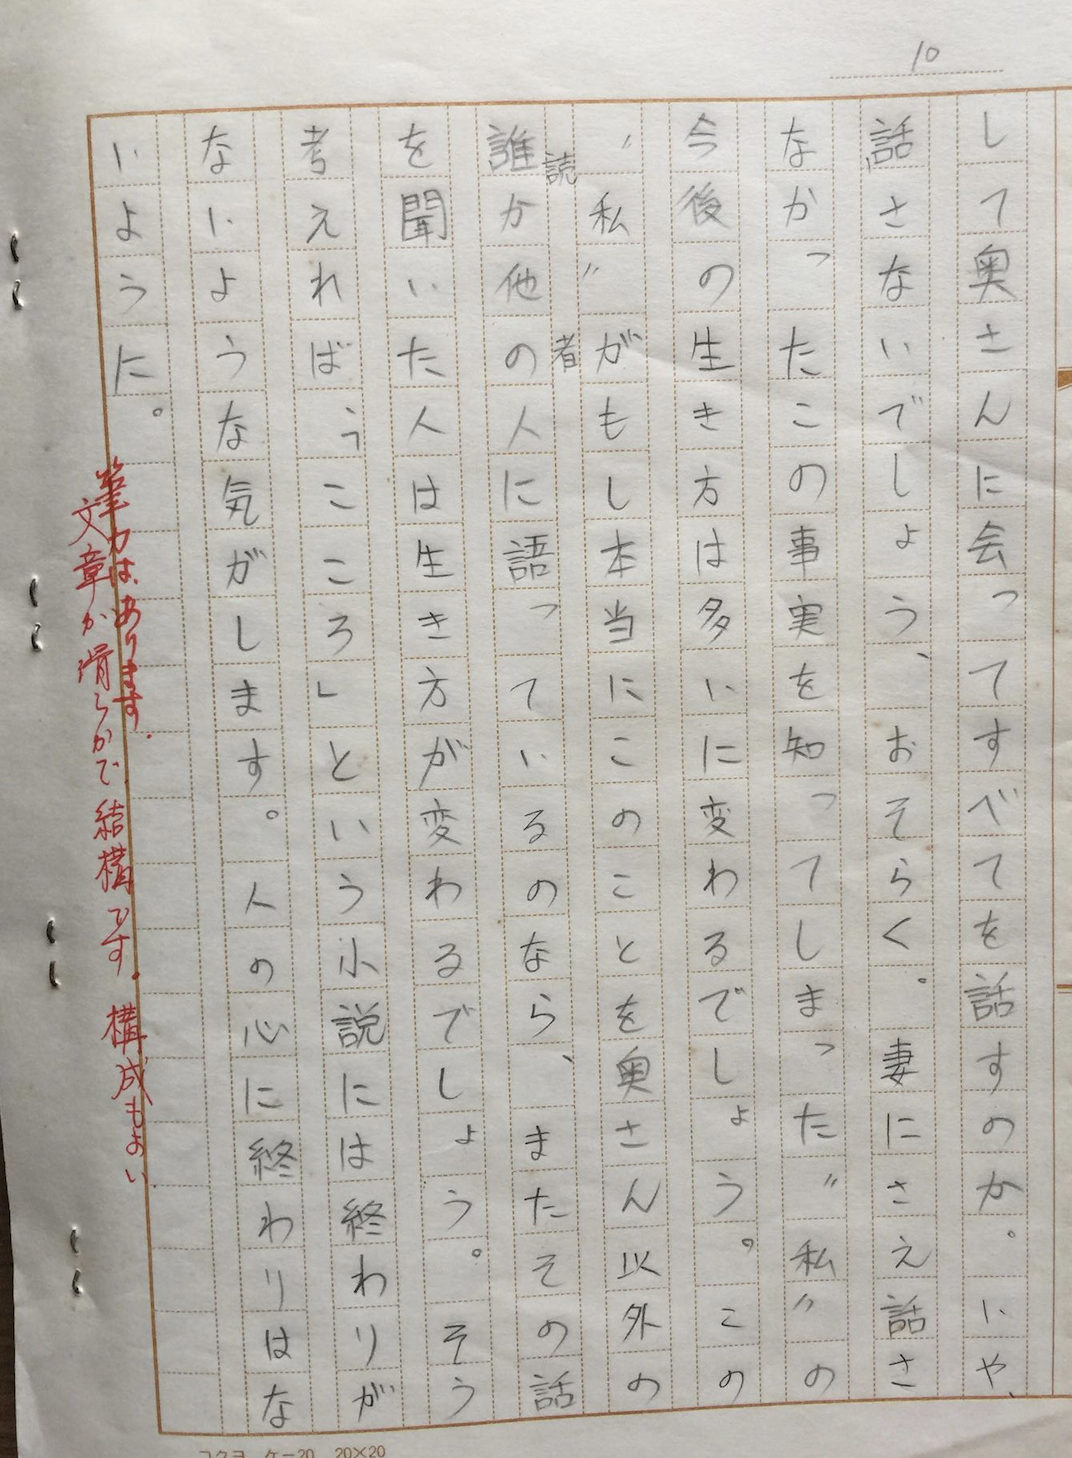 10
して奥さんに会ってすべてを話すのか。いや、
話さないでしょう、おそらく。妻にさえ話さ
なかったこの事実を知ってしまった〝私〟の
今後の生き方は多いに変わるでしょう。この
〝私〟がもし本当にこのことを奥さん以外の
読者
誰か他の人に語っているのなら、またその話
を聞いた人は生き方が変わるでしょう。そう
考えれば「こころ」という小説には終わりが
ないような気がします。人の心に終わりはな
いように。
筆力は、あります。
文章が滑らかで結構です。構成もよい
コクヨ ケー20 20×20